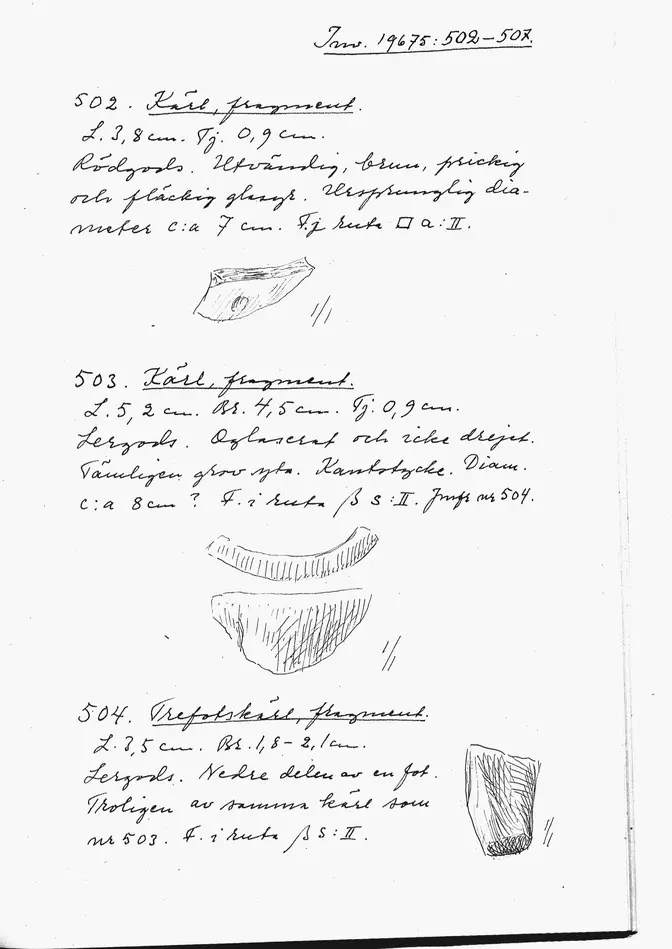 Inv. 19675:502-507.
502. Kärl, fragment.
L. 3,8 cm. Tj. 0,9 cm.
Rödgods. Utvändig, brun, prickig
och fläckig glasyr. Ursprunglig dia-
meter c:a 7 cm. F.i ruta □ a:II.
1/1
503. Kärl, fragment.
L. 5,2 cm. Br. 4,5 cm. Tj. 0,9 cm.
Lergods. Oglaserat och icke drejat.
Tämligen grov yta. Kantstycke. Diam.
c:a 8 cm? F. i ruta β s:II. Jmfr nr 504.
1/1
504. Trefotskärl, fragment.
L. 3,5 cm. Br. 1,8-2,1 cm.
Lergods. Nedre delen av en fot.
Troligen av samma kärl som
nr 503. F. i ruta β s:II.
1/1